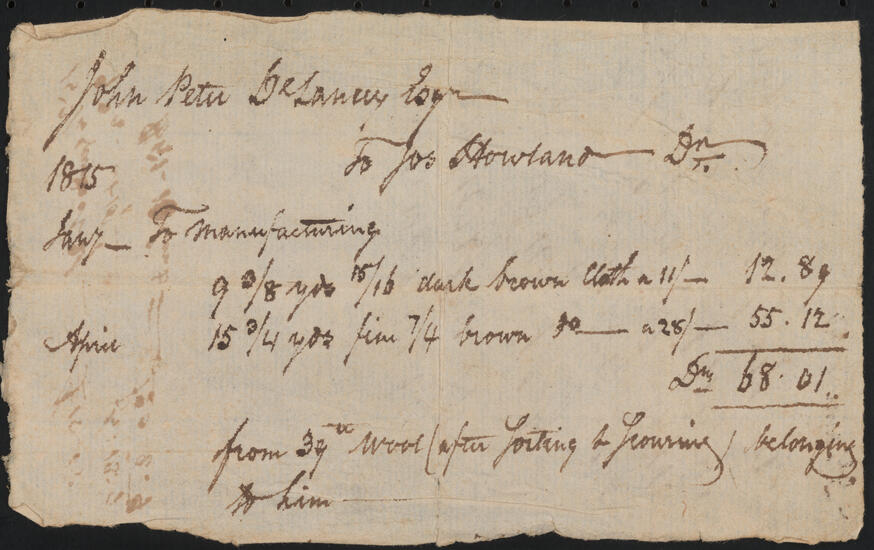 John Peter DeLancey Esqr
To Jos Howland Dr.
1815
Jany To Manufacturing
9 3/8 yds 15/16 dark brown Cloth a 11/ 12.89
April 15 3/4 yds fine 7/4 brown Do a 28/ 55.12
Drs 68.01
from 39 lb Wool (after Sorting & Scouring) belonging
to him